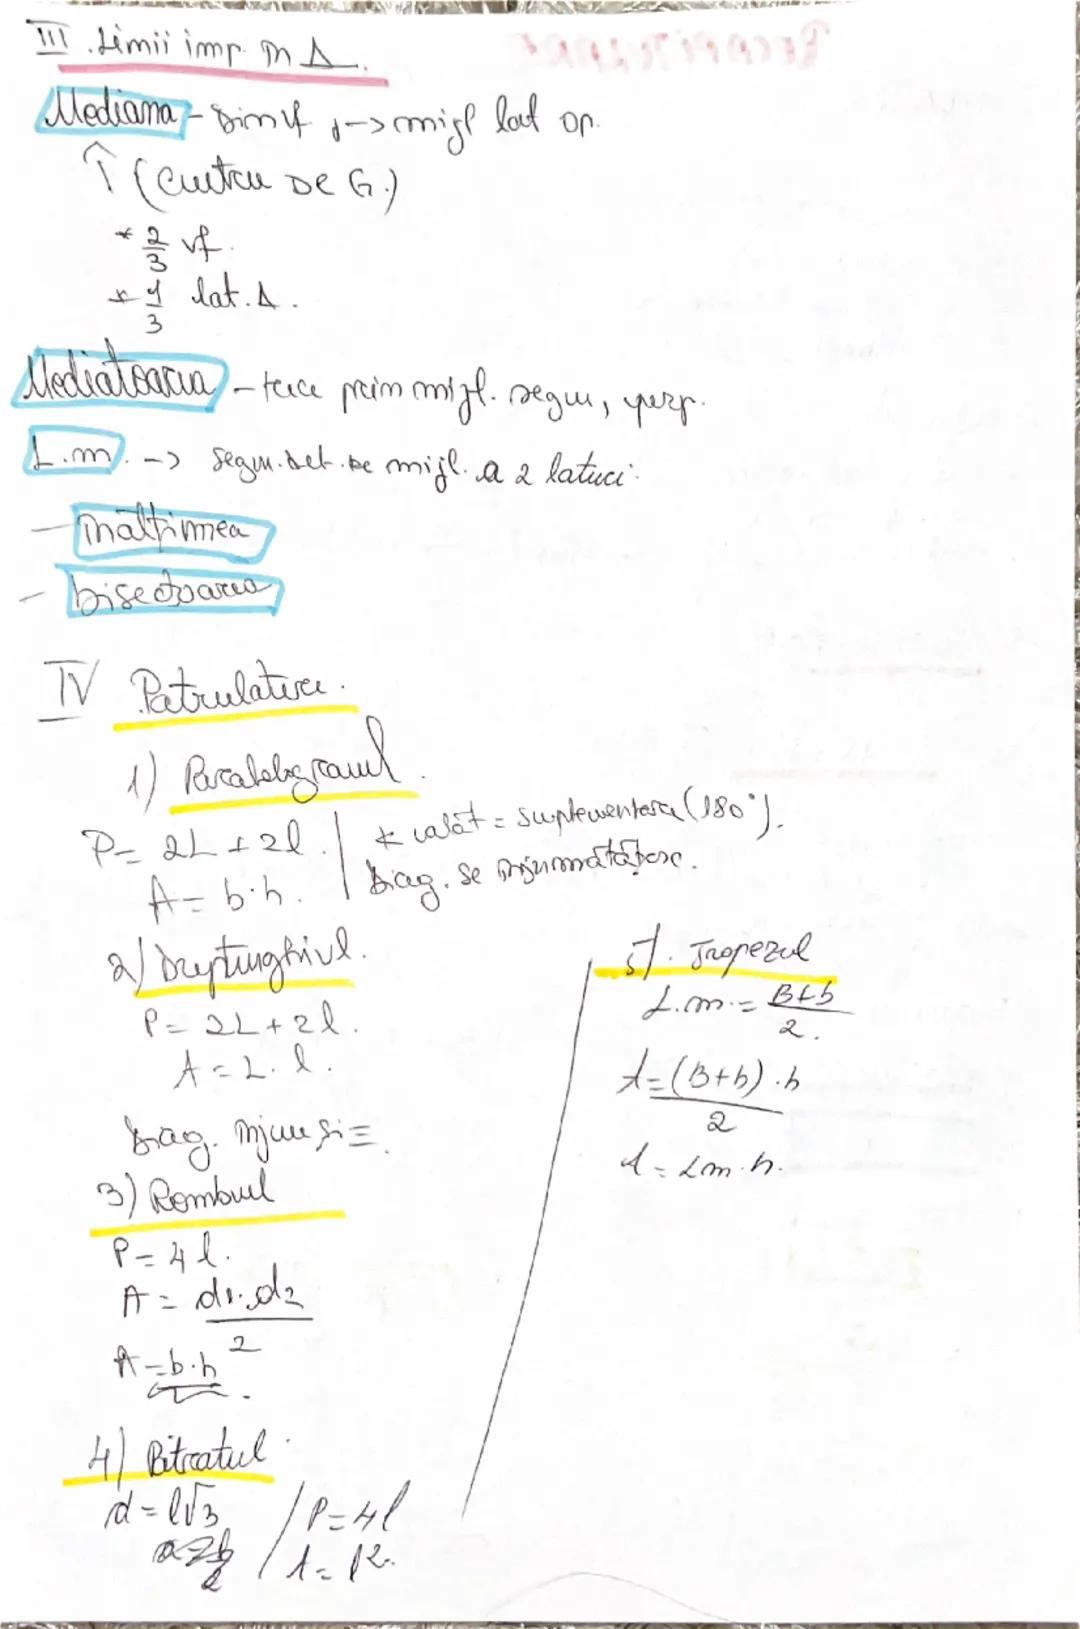 III. Linii imp. în Δ.
Mediana - din vf, -> mijl lat op.
↑ (Centru DE G.)
* 2/3 vf.
* 1/3 lat. Δ.
Mediatoarea - trece prin mijl. segm, perp.
L.m. -> segm. det. de mijl. a 2 laturi.
- înălțimea
- bisectoarea
IV Patrulatere.
1) Paralelogramul.
P = 2L + 2l. | * alăt = suplementare (180°).
A = b·h. | Diag. se înjumătățesc.
2) Dreptunghiul.
P = 2L + 2l.
A = L·l.
Diag. înjum și =.
3) Rombul
P = 4l.
A = d1·d2/2
A = b·h.
4) Pătratul.
d = l√3 / P = 4l
A = l².
5). Trapezul
L.m. = B+b/2.
A = (B+b)·h/2
A = Lm·h.